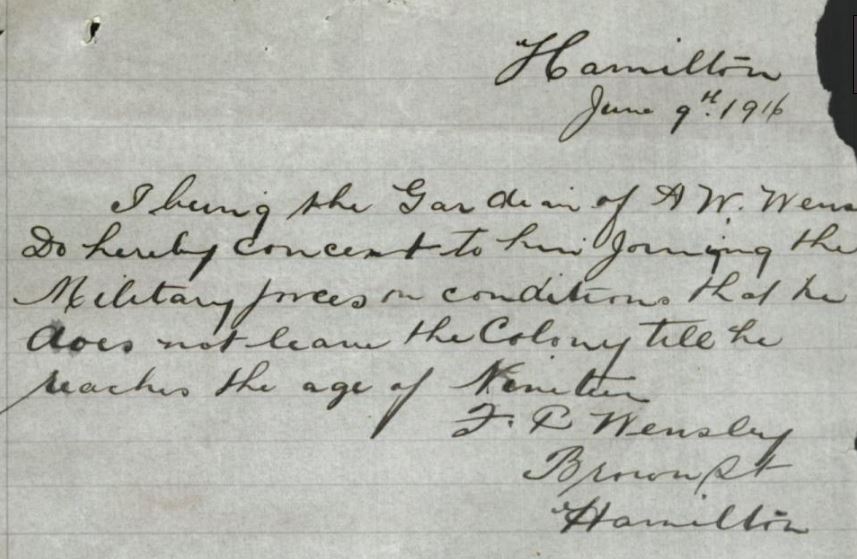 Hamilton
June 9th. 1916
I being the Gardein of A W. Wens
Do hereby concent to him Joining the
Military forces on conditions that he
does not leave the Colony till he
reaches the age of Nineteen
F. P Wensley
Brown St
Hamilton